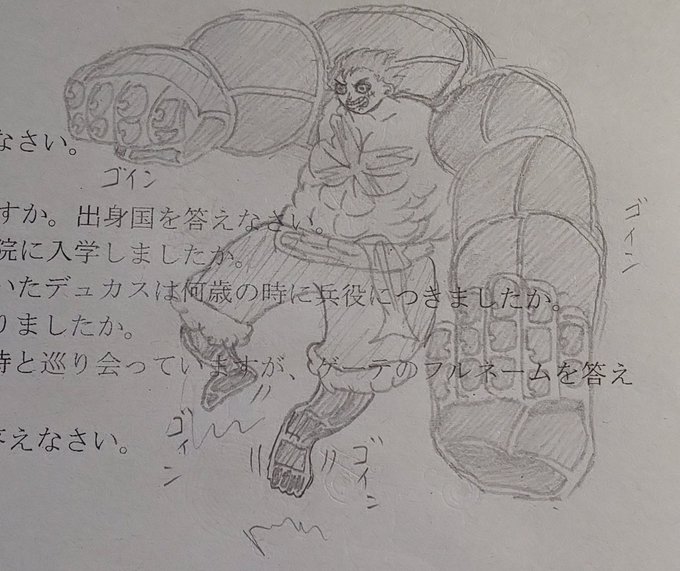 なさい。
ゴイン
すか。出身国を答えなさい。
ゴイン
院に入学しましたか。
いたデュカスは何歳の時に兵役につきましたか。
りましたか。
時と巡り会っていますが、ゲーテのフルネームを答え
答えなさい。
ゴイン
ゴイン